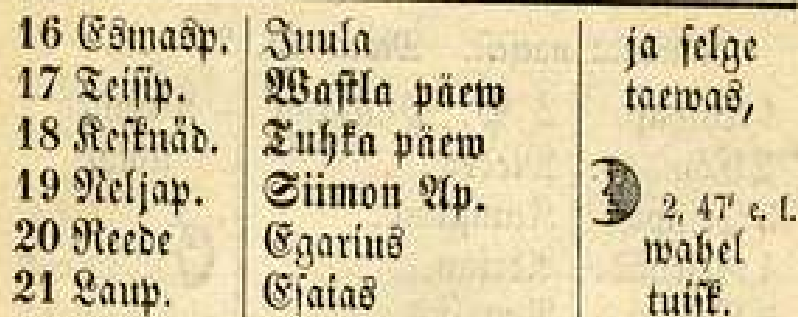 16 Esmasp. Juula ja selge
17 Teisip. Wastla päew taewas,
18 Kesknäd. Tuhka päew
19 Neljap. Siimon Ap. 2, 47' e. l.
20 Reede Egarius wahel
21 Laup. Esaias tuisk.